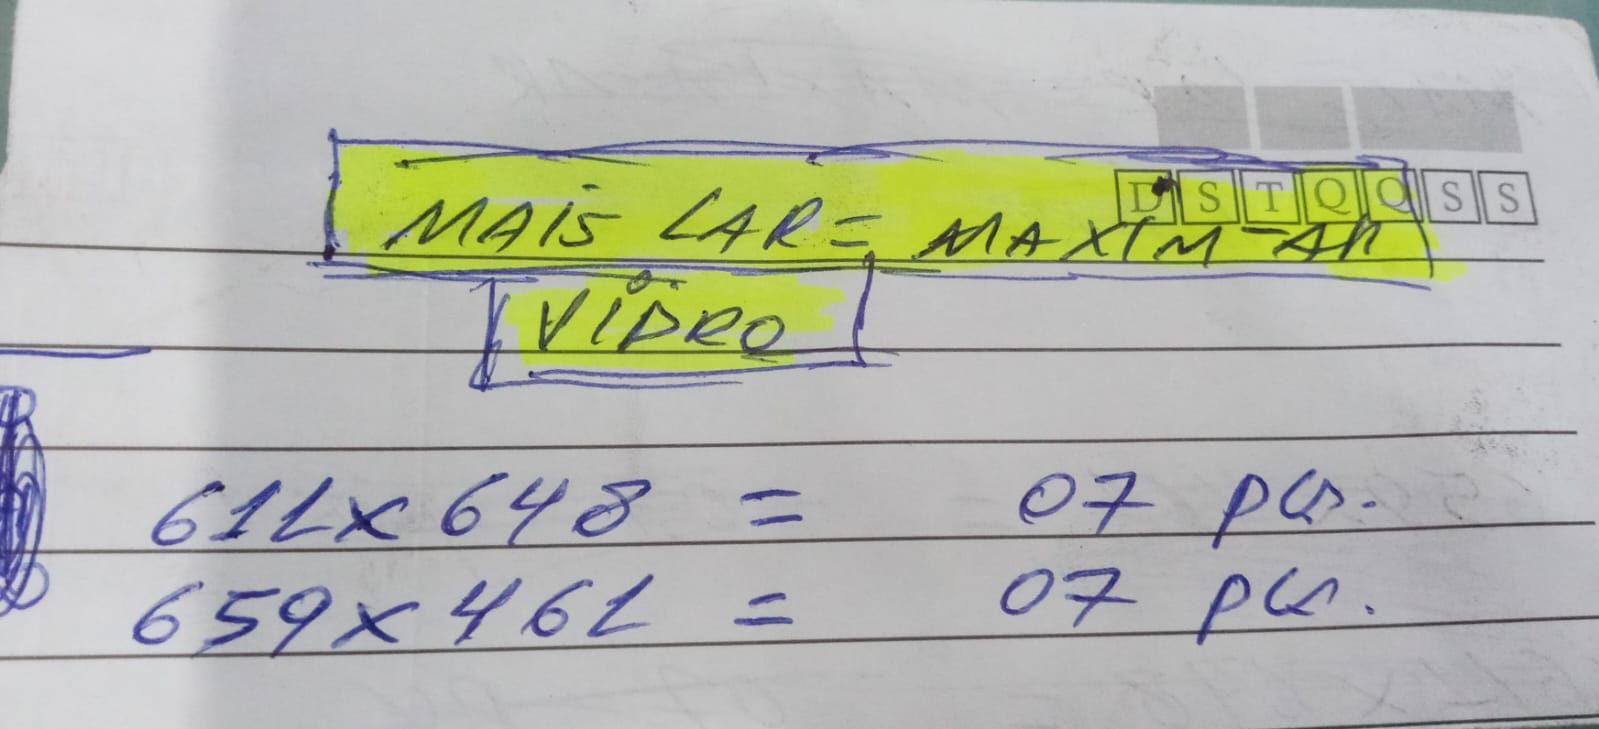 D S T Q Q S S
MAIS LAR = MAXIM-AR
VIDRO
611 x 648 = 07 pçs.
659 x 461 = 07 pçs.